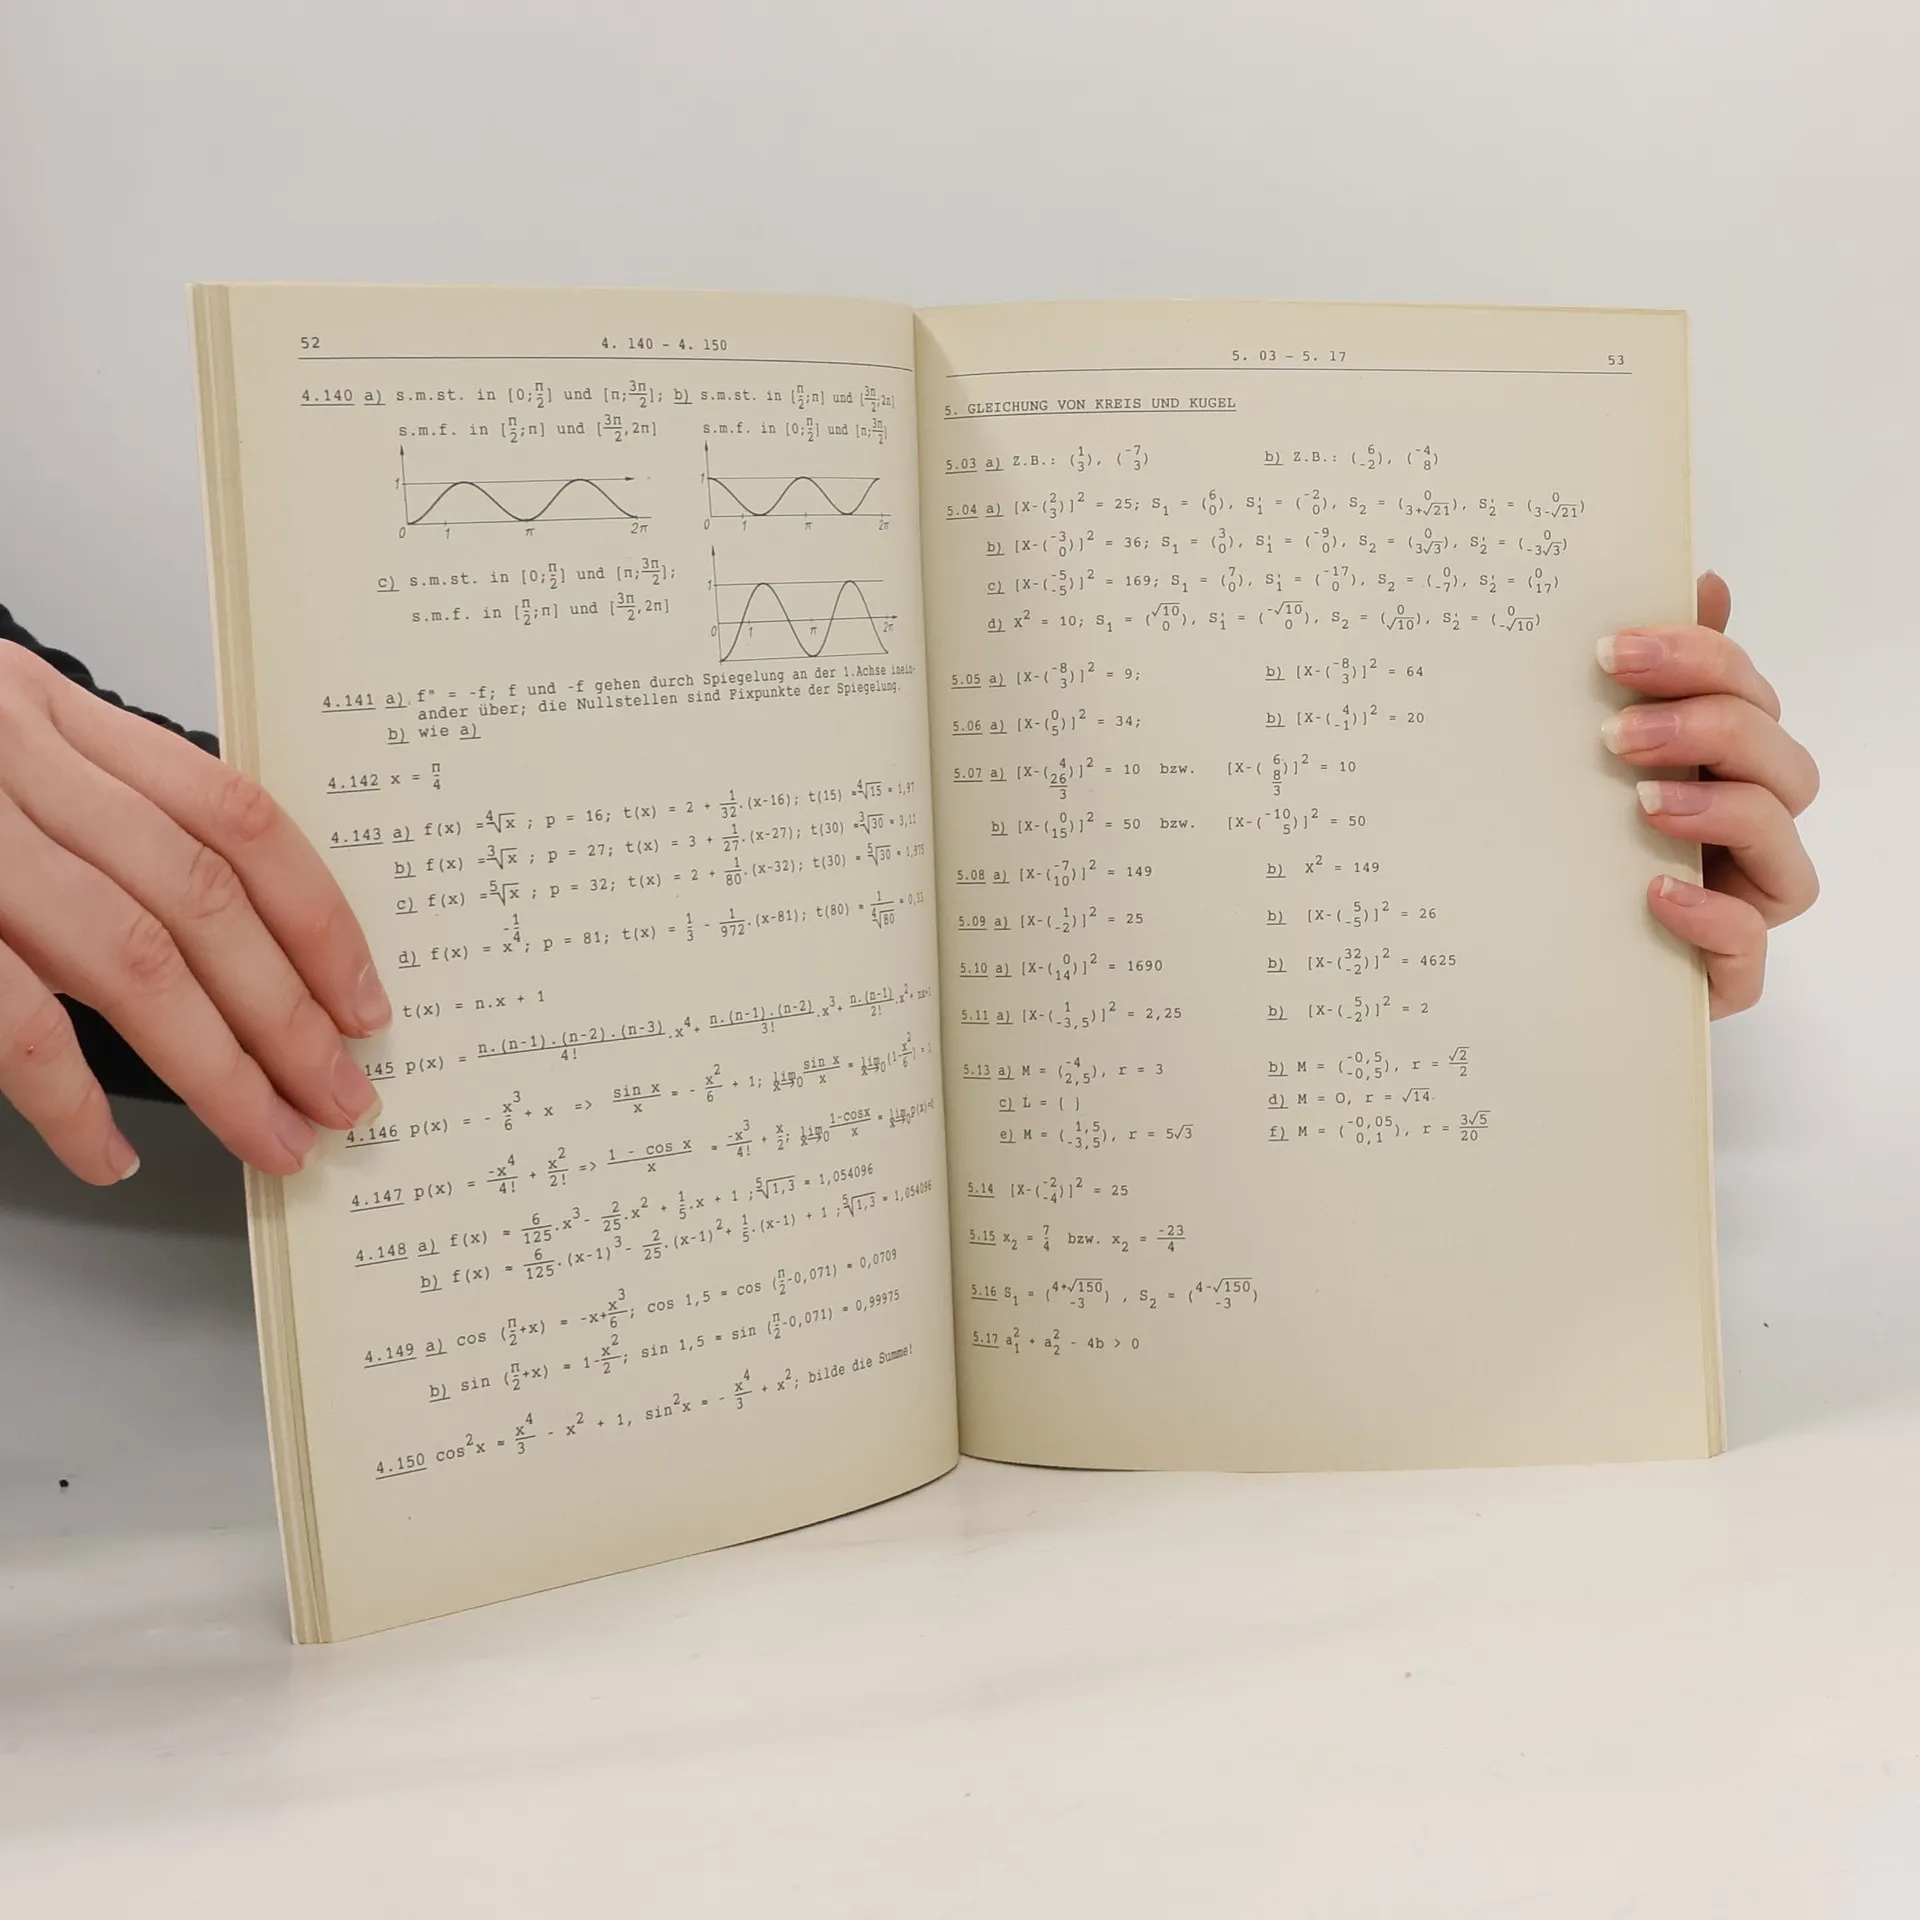 52 4. 140 - 4. 150
4.140 a) s.m.st. in [0;π/2] und [π;3π/2]; b) s.m.st. in [π/2;π] und [3π/2,2π]
s.m.f. in [π/2;π] und [3π/2,2π] s.m.f. in [0;π/2] und [π;3π/2]
1 0 1 π 2π
1 0 1 π 2π
c) s.m.st. in [0;π/2] und [π;3π/2];
s.m.f. in [π/2;π] und [3π/2,2π]
1 0 1 π 2π
4.141 a) f" = -f; f und -f gehen durch Spiegelung an der 1.Achse inein-
ander über; die Nullstellen sind Fixpunkte der Spiegelung.
b) wie a)
4.142 x = π/4
4.143 a) f(x) = ⁴√x ; p = 16; t(x) = 2 + 1/32.(x-16); t(15) ≈ ⁴√15 ≈ 1,97
b) f(x) = ³√x ; p = 27; t(x) = 3 + 1/27.(x-27); t(30) ≈ ³√30 ≈ 3,11
c) f(x) = ⁵√x ; p = 32; t(x) = 2 + 1/80.(x-32); t(30) ≈ ⁵√30 ≈ 1,975
d) f(x) = x^(-1/4); p = 81; t(x) = 1/3 - 1/972.(x-81); t(80) ≈ 1/⁴√80 ≈ 0,33
t(x) = n.x + 1
145 p(x) = n.(n-1).(n-2).(n-3)/4!.x⁴+ n.(n-1).(n-2)/3!.x³+ n.(n-1)/2!.x²+ nx+1
4.146 p(x) = - x³/6 + x => sin x/x ≈ - x²/6 + 1; lim x→0 sin x/x = lim x→0 (1-x²/6) = 1
4.147 p(x) = -x⁴/4! + x²/2! => 1 - cos x/x ≈ -x³/4! + x/2; lim x→0 1-cosx/x = lim x→0
4.148 a) f(x) ≈ 6/125.x³- 2/25.x² + 1/5.x + 1 ; ⁵√1,3 ≈ 1,054096
b) f(x) ≈ 6/125.(x-1)³- 2/25.(x-1)²+ 1/5.(x-1) + 1 ; ⁵√1,3 ≈ 1,054096
4.149 a) cos (π/2+x) ≈ -x+x³/6; cos 1,5 ≈ cos (π/2-0,071) ≈ 0,0709
b) sin (π/2+x) ≈ 1-x²/2; sin 1,5 ≈ sin (π/2-0,071) ≈ 0,99975
4.150 cos²x ≈ x⁴/3 - x² + 1, sin²x ≈ - x⁴/3 + x²; bilde die Summe!
5. 03 - 5. 17 53
5. GLEICHUNG VON KREIS UND KUGEL
5.03 a) Z.B.: (1/3), (-7/3) b) Z.B.: (6/-2), (-4/8)
5.04 a) [X-(2/3)]² = 25; S₁ = (6/0), S₁' = (-2/0), S₂ = (0/3+√21), S₂' = (0/3-√21)
b) [X-(-3/0)]² = 36; S₁ = (3/0), S₁' = (-9/0), S₂ = (0/3√3), S₂' = (0/-3√3)
c) [X-(-5/-5)]² = 169; S₁ = (7/0), S₁' = (-17/0), S₂ = (0/-7), S₂' = (0/17)
d) X² = 10; S₁ = (√10/0), S₁' = (-√10/0), S₂ = (0/√10), S₂' = (0/-√10)
5.05 a) [X-(-8/3)]² = 9; b) [X-(-8/3)]² = 64
5.06 a) [X-(0/5)]² = 34; b) [X-(4/-1)]² = 20
5.07 a) [X-(4/26/3)]² = 10 bzw. [X-(6/8/3)]² = 10
b) [X-(0/15)]² = 50 bzw. [X-(-10/5)]² = 50
5.08 a) [X-(-7/10)]² = 149 b) X² = 149
5.09 a) [X-(1/-2)]² = 25 b) [X-(5/-5)]² = 26
5.10 a) [X-(0/14)]² = 1690 b) [X-(32/-2)]² = 4625
5.11 a) [X-(1/-3,5)]² = 2,25 b) [X-(5/-2)]² = 2
5.13 a) M = (-4/2,5), r = 3 b) M = (-0,5/-0,5), r = √2/2
c) L = { } d) M = O, r = √14.
e) M = (1,5/-3,5), r = 5√3 f) M = (-0,05/0,1), r = 3√5/20
5.14 [X-(-2/-4)]² = 25
5.15 x₂ = 7/4 bzw. x₂ = -23/4
5.16 S₁ = (4+√150/-3) , S₂ = (4-√150/-3)
5.17 a₁² + a₂² - 4b > 0